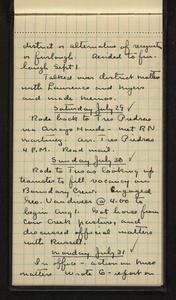 district or alternative of resignation
or furlough. Decided to fur-
lough Sept 1.
Talked over district matters
with Lawrence and Myers
and made memos.
Saturday July 29 ✓
Rode back to Tres Piedras
via Arroyo Hondo - met RN
Ar. Tres Piedras
4 P.M. Read mail.
Sunday July 30 ✓
Rode to Tusas looking up
teamster to fill vacancy on
Boundary Crew. Engaged
Geo. Vandiver @ 40.00 to
begin Aug 1. Got horse from
Cow Creek pasture, and
discussed official matters
with Russell.
Monday July 31 ✓
In office - action on misc
matters. Wrote G- report on